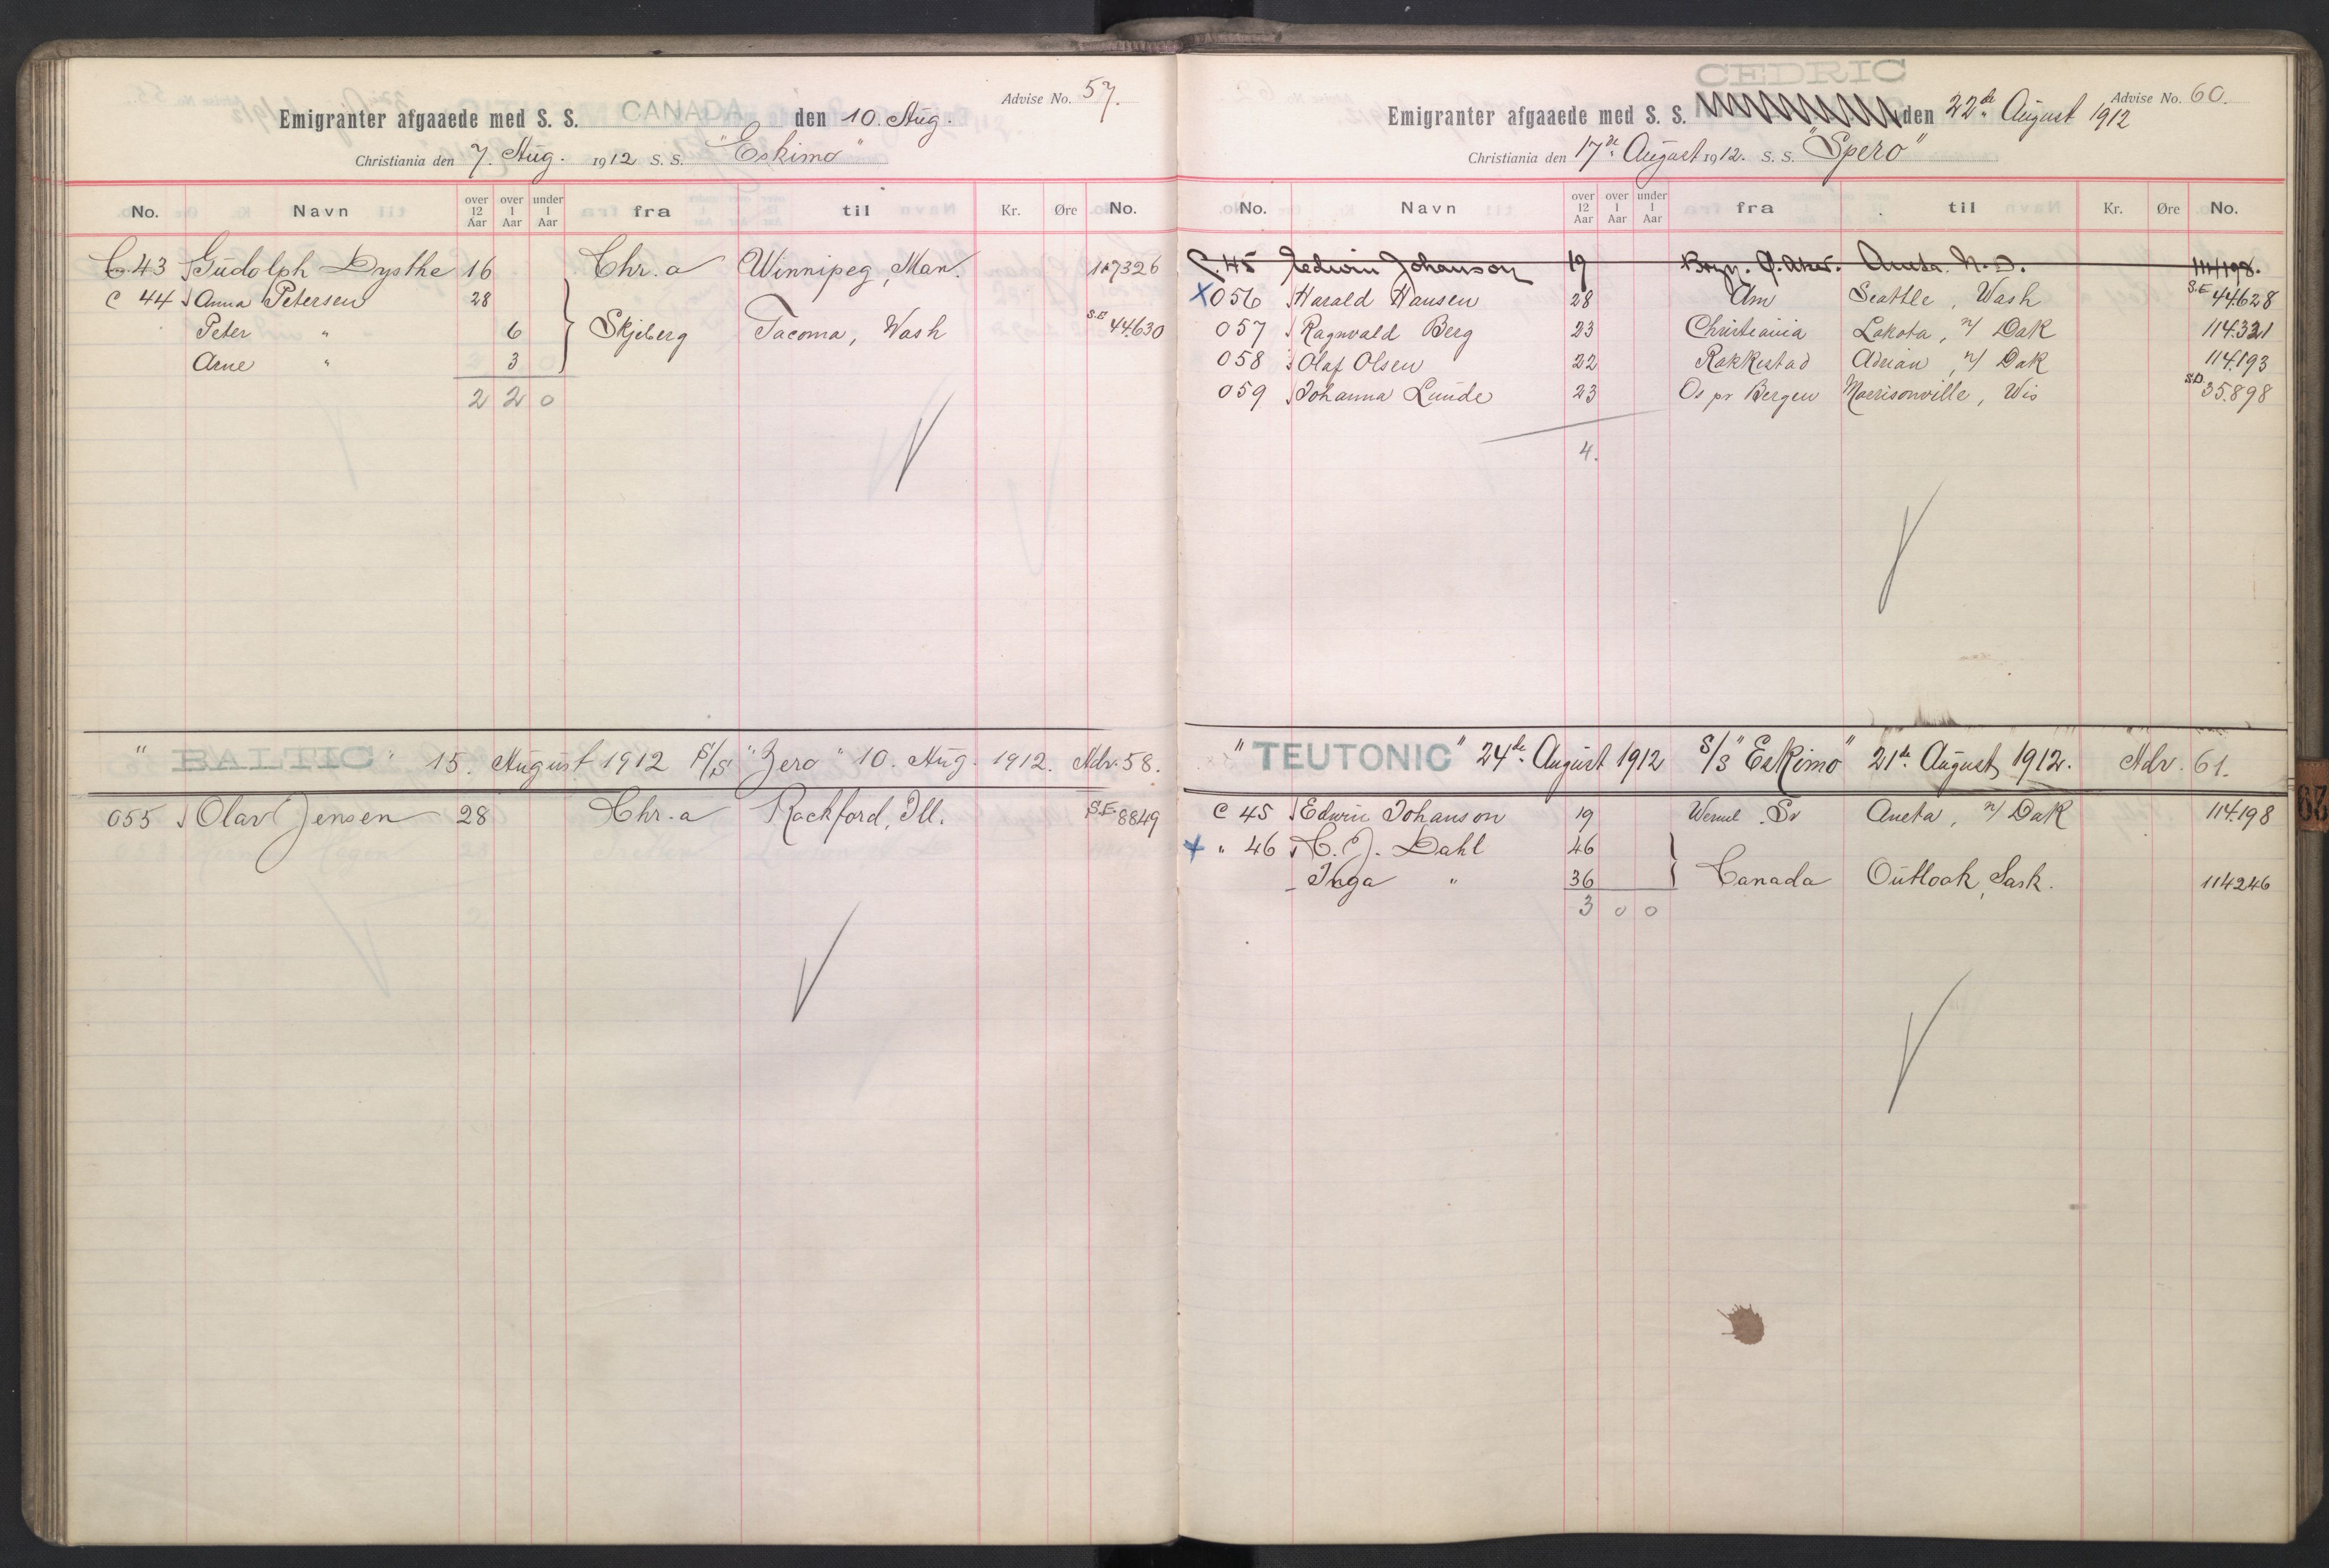 Advise No. 57.
Emigranter afgaaede med S. S. CANADA den 10. Aug.
Christiania den 7. Aug. 1912 S. S. "Eskimo"
No. Navn over 12 Aar over 1 Aar under 1 Aar fra til Kr. Øre No.
C. 43 Gudolph Dysthe 16 Chr.a Winnipeg, Man. 107326
C 44 Anna Petersen 28
Peter " 6 Skjeberg Tacoma, Wash S.E 44630
Arne " 3
2 2 0
" BALTIC " 15. August 1912 S/S "Zero" 10. Aug. 1912. Adv. 58.
055 Olav Jensen 28 Chr.a Rockford, Ill. S.E. 8849
CEDRIC
Advise No. 60.
Emigranter afgaaede med S. S. den 22de August 1912
Christiania den 17de August 1912. S. S. "Spero"
No. Navn over 12 Aar over 1 Aar under 1 Aar fra til Kr. Øre No.
C. 45 Edwin Johanson 19 Bryn. Ø. Aker. Aneta. N. D. 114198.
X 056 Harald Hansen 28 Am Seattle, Wash S.E 44628
057 Ragnvald Berg 23 Christiania Lakota, N/ Dak 114.321
058 Olaf Olsen 22 Rakkestad Adrian, N/ Dak 114.193
059 Johanna Lunde 23 Os pr Bergen Morrisonville, Wis S.D. 35.898
4.
"TEUTONIC" 24de August 1912 S/S "Eskimo" 21de August 1912. Adv. 61.
C 45 Edwin Johanson 19 Sv Aneta, N/ Dak 114.198
X " 46 C. J. Dahl 46
Inga " 36 Canada Outlook, Sask. 114246
3 0 0